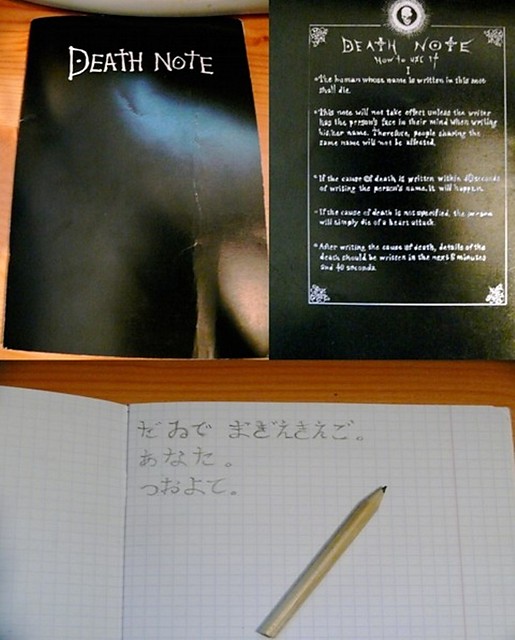 DEATH NOTE
DEATH NOTE
How to use it
I
• The human whose name is written in this note
shall die.
• This note will not take effect unless the writer
has the person's face in their mind when writing
his/her name. Therefore, people sharing the
same name will not be affected.
• If the cause of death is written within 40 seconds
of writing the person's name, it will happen.
• If the cause of death is not specified, the person
will simply die of a heart attack.
• After writing the cause of death, details of the
death should be written in the next 6 minutes
and 40 seconds.
だゐで まぎえきえご。
あなた。
つおよて。